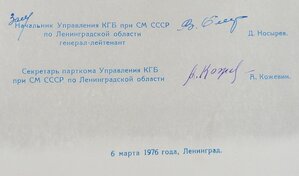 Зам.
Начальник Управления КГБ при СМ СССР
по Ленинградской области
генерал-лейтенант
Д. Носырев.
Секретарь парткома Управления КГБ
при СМ СССР по Ленинградской области
К. Кожевин.
6 марта 1976 года, Ленинград.